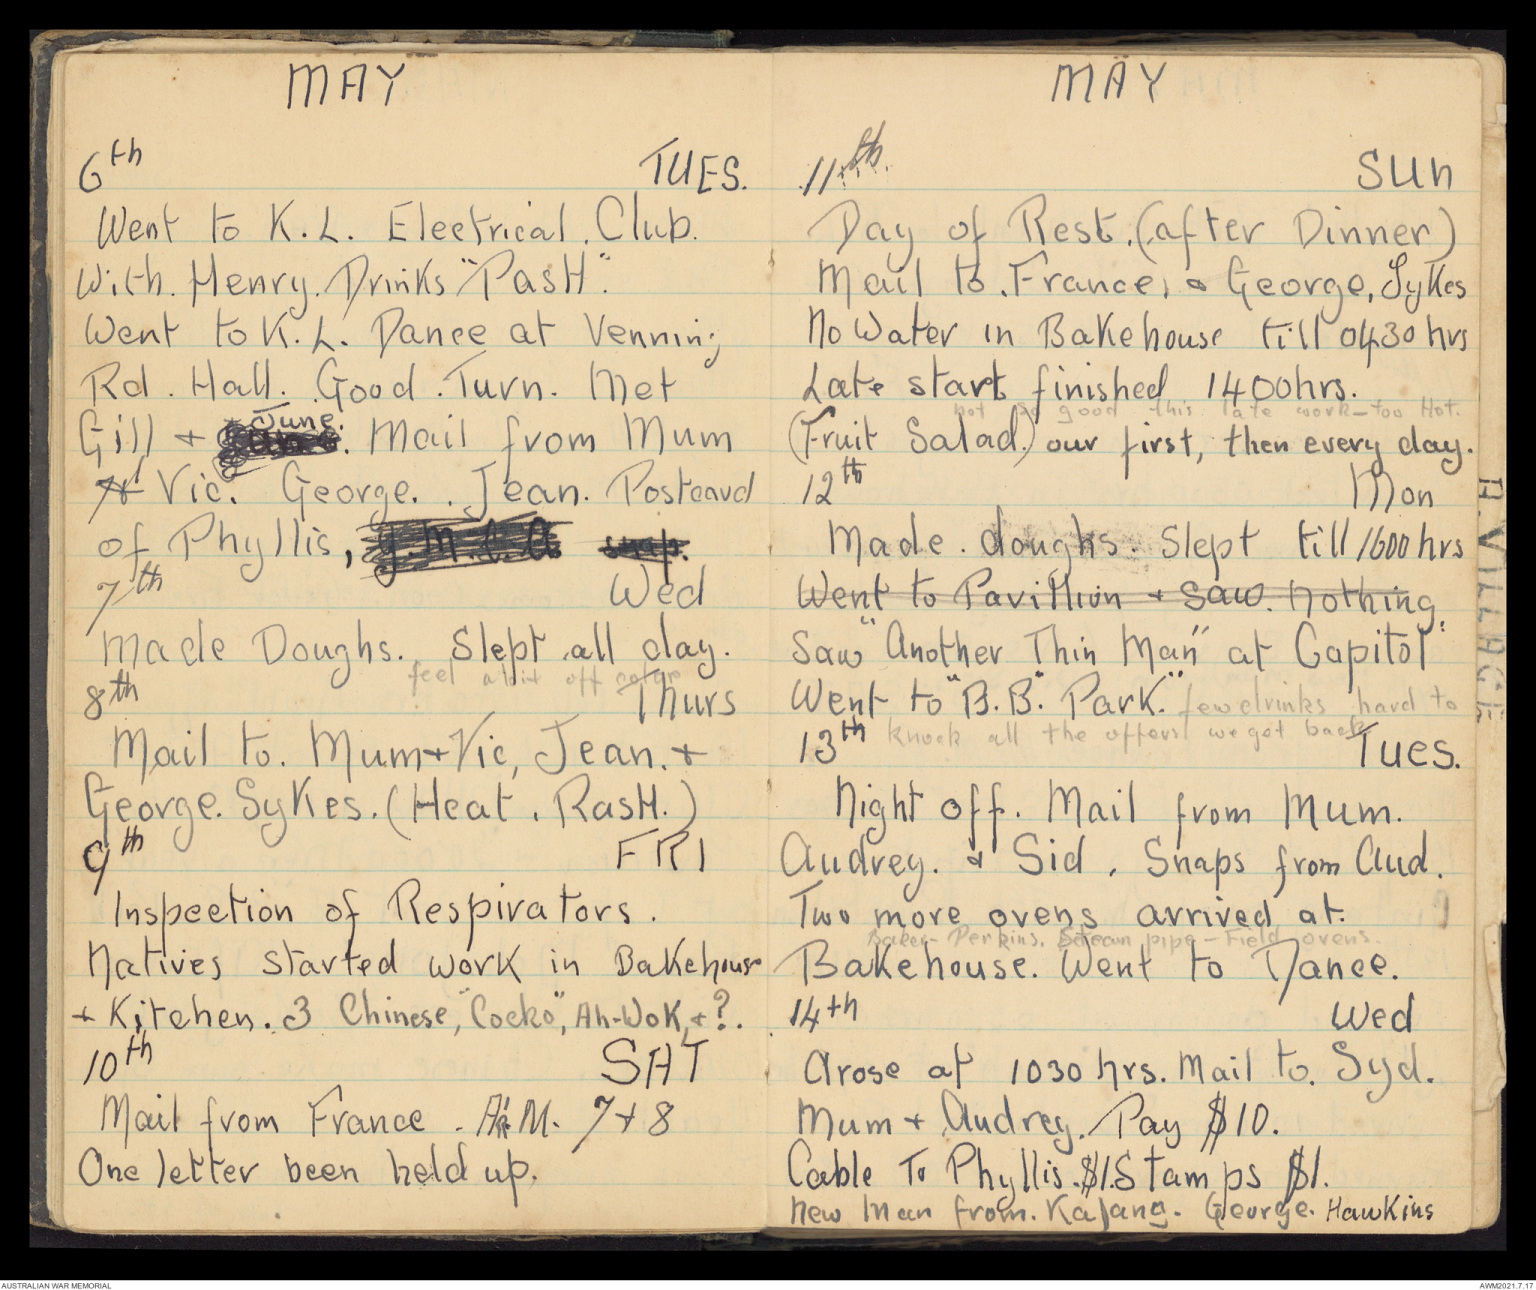 MAY
6th TUES.
Went to K.L. Electrical Club.
With. Henry. Drinks "PasH".
Went to K.L. Dance at Venning
Rd. Hall. Good Turn. Met
Gill + June. Mail from Mum
Vic. George. Jean. Postcard
of Phyllis, Y.M.C.A snap.
7th Wed
Made Doughs. Slept all day.
feel a bit off color
8th Thurs
Mail to. Mum + Vic, Jean. +
George. Sykes. (Heat. RasH.)
9th FRI
Inspection of Respirators.
Natives started work in Bakehouse
+ Kitchen. 3 Chinese, "Cocko", Ah-Wok, + ?.
10th SAT
Mail from France. Air M. 7 + 8
One letter been held up.
MAY
11th SUn
Day of Rest. (after Dinner)
Mail to. France, & George, Sykes
No Water in Bakehouse till 0430 hrs
Late start finished 1400hrs.
not so good this late work - too Hot.
(Fruit Salad.) our first, then every day.
12th Mon
Made. doughs. Slept till 1600 hrs
Went to Pavillion + saw. nothing.
Saw "Another Thin Man" at Capitol
Went to "B.B." Park." few drinks hard to
knock all the offers we get back
13th Tues.
Night off. Mail from Mum.
Audrey. & Sid. Snaps from Aud.
Two more ovens arrived at.
Baker-Perkins. Steam pipe - Field ovens.
Bakehouse. Went to Dance.
14th Wed
Arose at 1030 hrs. Mail to. Syd.
Mum + Audrey. Pay $10.
Cable To Phyllis. $1. Stamps $1.
New Man from. Kajang. George. Hawkins
AUSTRALIAN WAR MEMORIAL
AWM2021.7.17